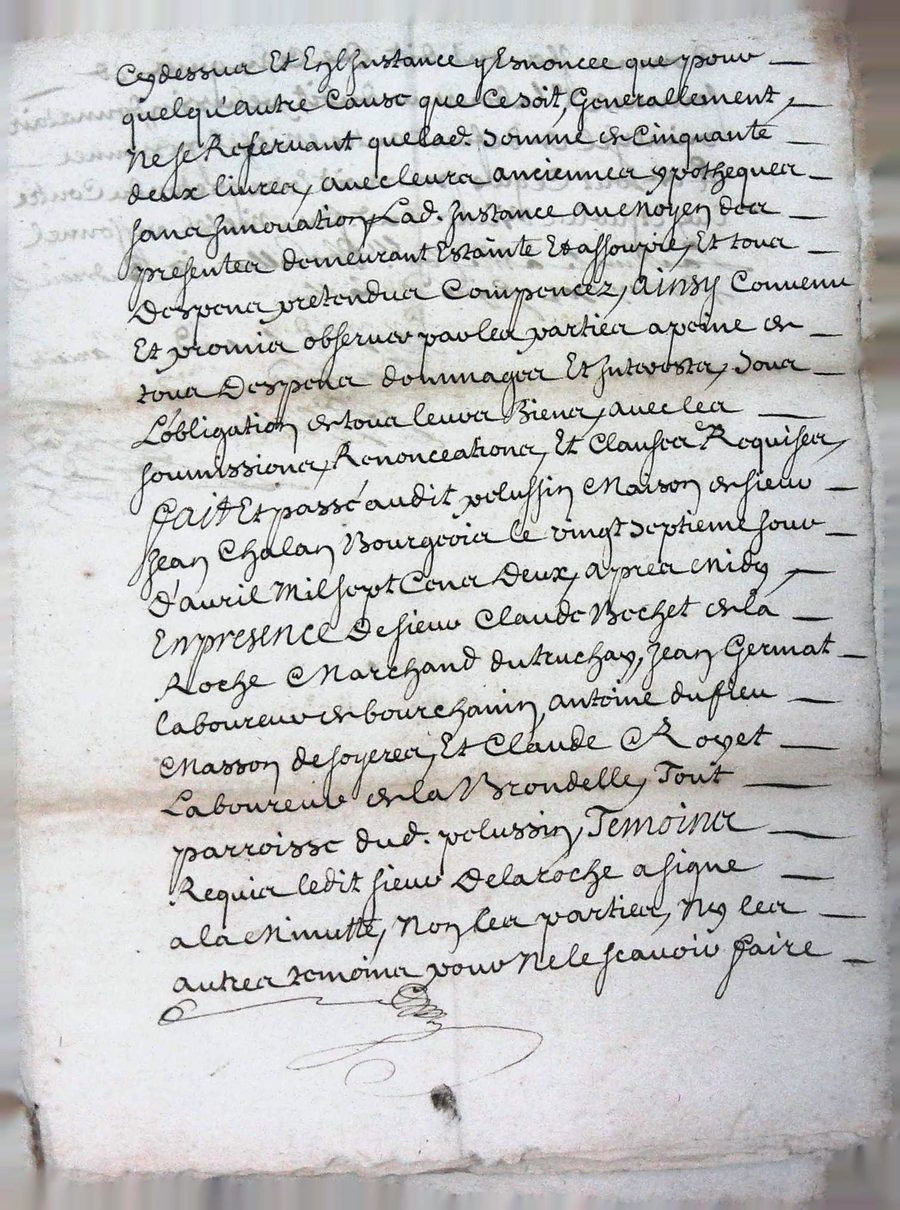 Cydessus Et Enl'Instance yEsnoncee que pour
quelqu'autre Cause que Ce soit, Generallement,
Ne se Reservant que lad. somme de Cinquante
deux livres, avec leurs anciennes ypotheques
sans Innovation, Lad. Instance au moyen des
presentes demeurant Estainte Et assoupie, Et tous
Despens pretendus Compencez, ainsy Convenu
Et promis observer par les parties a peine de
tous Despens dommages Et Interests, sous
L'obligation de tous leurs Biens, avec les
soumissions, Renonceations, Et Clauses Requises,
fait Et passé audit pelussin Maison de sieur
Jean Chalan Bourgeois le vingt septieme Jour
d'avril Mil sept Cens Deux, apres Midy,
En presence De sieur Claude Bechet de la
Roche Marchand du truchay, Jean Germat
laboureur de bourchanin, antoine dufieu
Masson de soyeres, Et Claude Royet
Laboureur de la Brondelle, Tout
parroisse dud. pelussin, Temoins
Requis ledit sieur Delaroche a signe
a la Minutte, Non les parties, Ny les
autres temoins pour Ne le scavoir faire